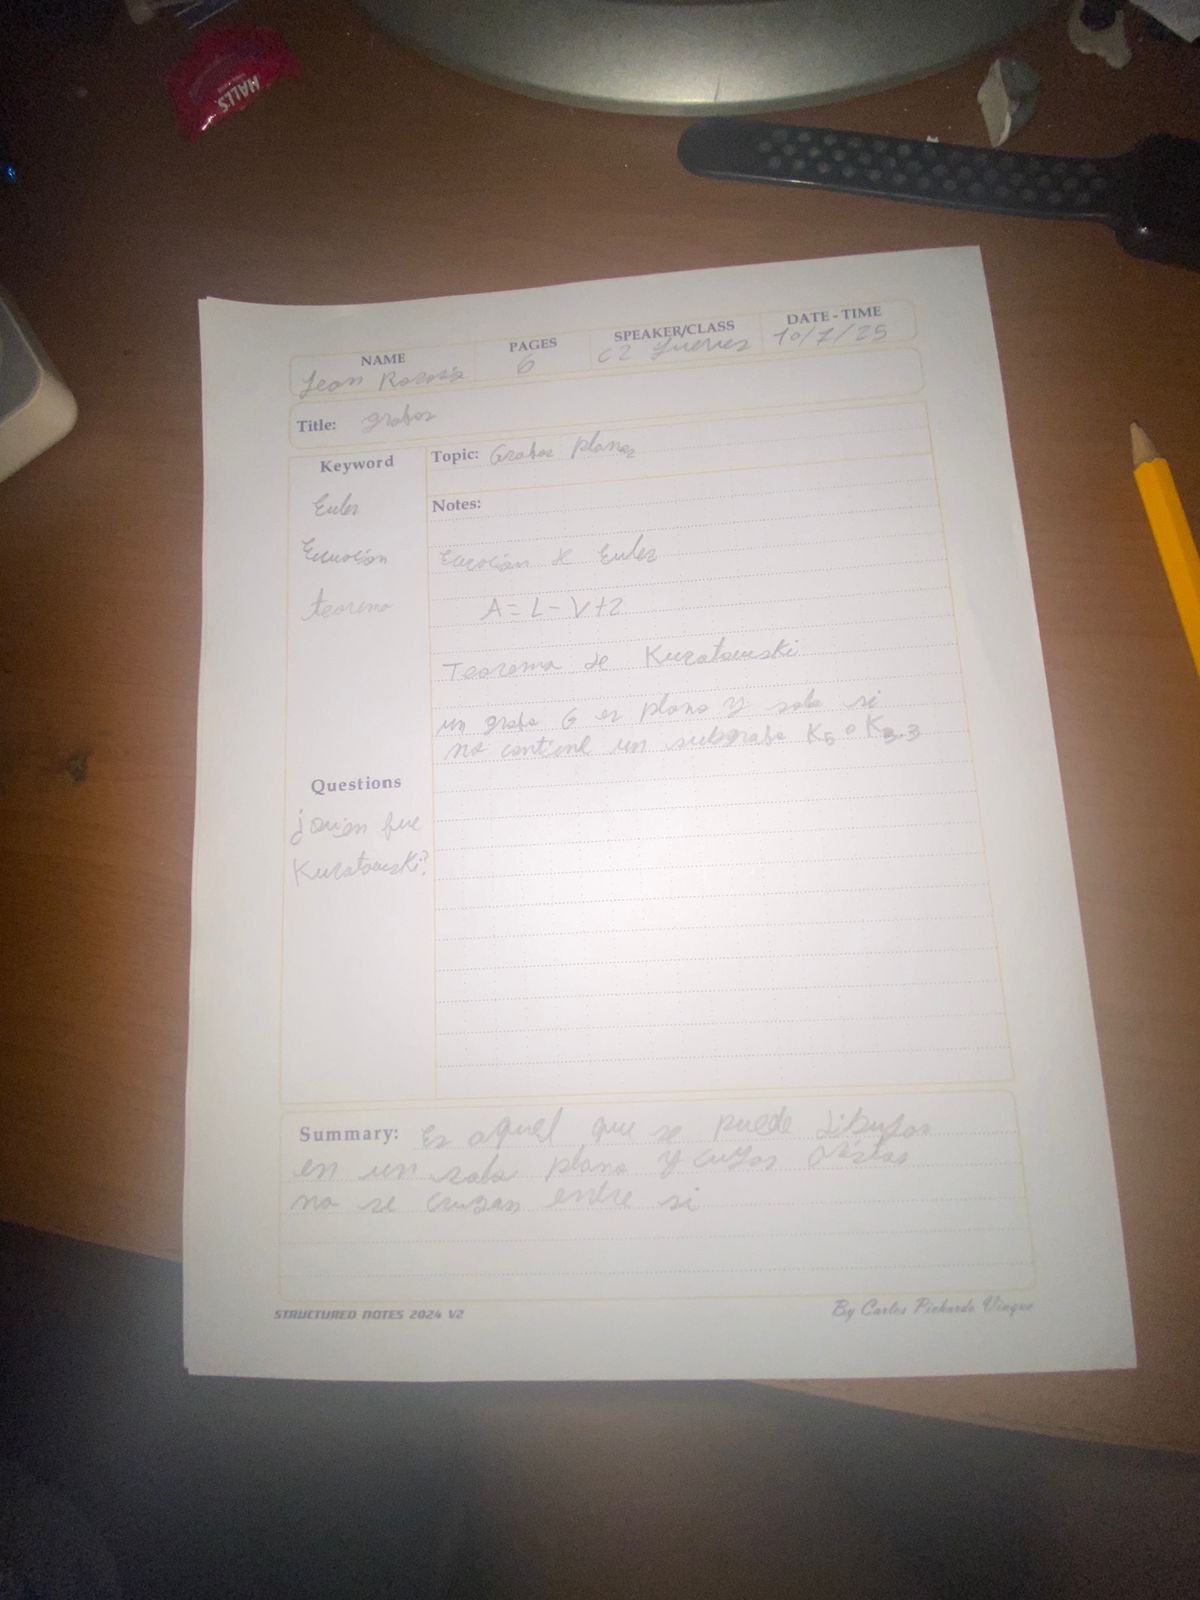 HALLS
NAME
PAGES
SPEAKER/CLASS
DATE - TIME
Jean
6
C2 Jueves
10/7/25
Title: grafos
Keyword
Topic: Grafos planos
Euler
Notes:
Ecuación
Ecuación de Euler
teorema
A = L - V + 2
Teorema de Kuratowski
un grafo G es plano y solo si
no contiene un subgrafo K5 o K3,3
Questions
¿Quien fue
Kuratowski?
Summary: Es aquel que se puede dibujar
en un solo plano y cuyas aristas
no se cruzan entre si
STRUCTURED NOTES 2024 V2
By Carlos Pichardo Viuque